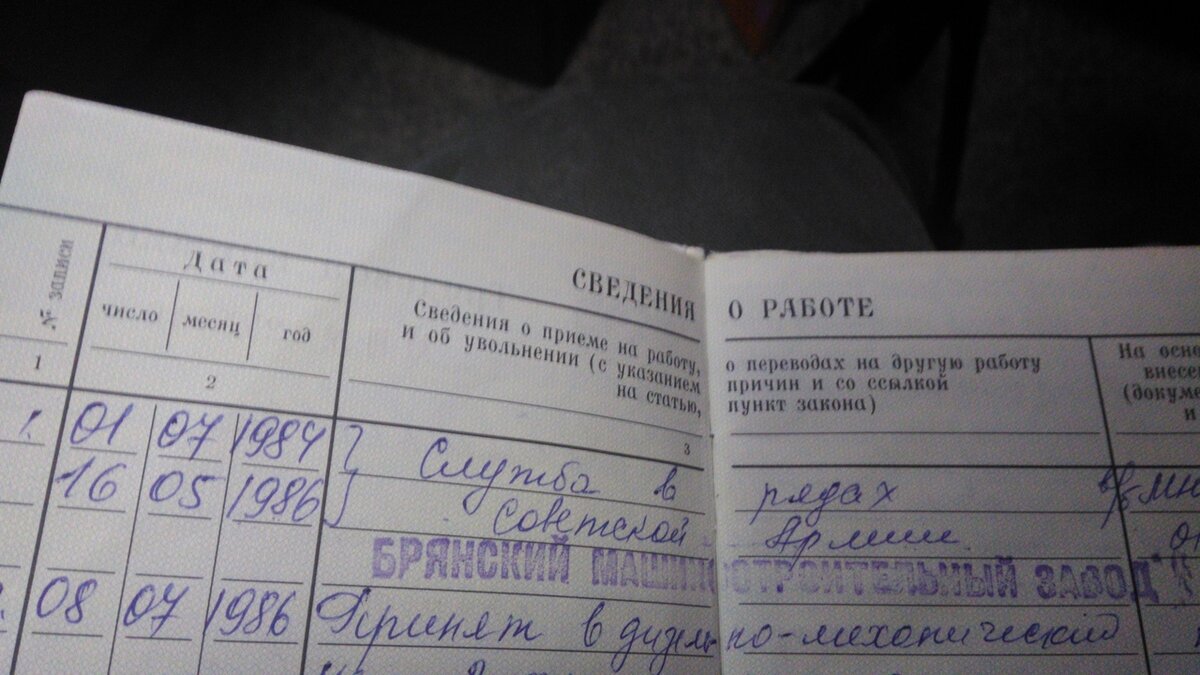 СВЕДЕНИЯ О РАБОТЕ
№ записи
Дата
число месяц год
Сведения о приеме на работу, о переводах на другую работу
и об увольнении (с указанием причин и со ссылкой
на статью, пункт закона)
На осно
внесе
(докуме
и
1 2 3
1. 01 07 1984 Служба в рядах
16 05 1986 Советской Армии
БРЯНСКИЙ МАШИНОСТРОИТЕЛЬНЫЙ ЗАВОД
08 07 1986 Принят в дизельно-механический